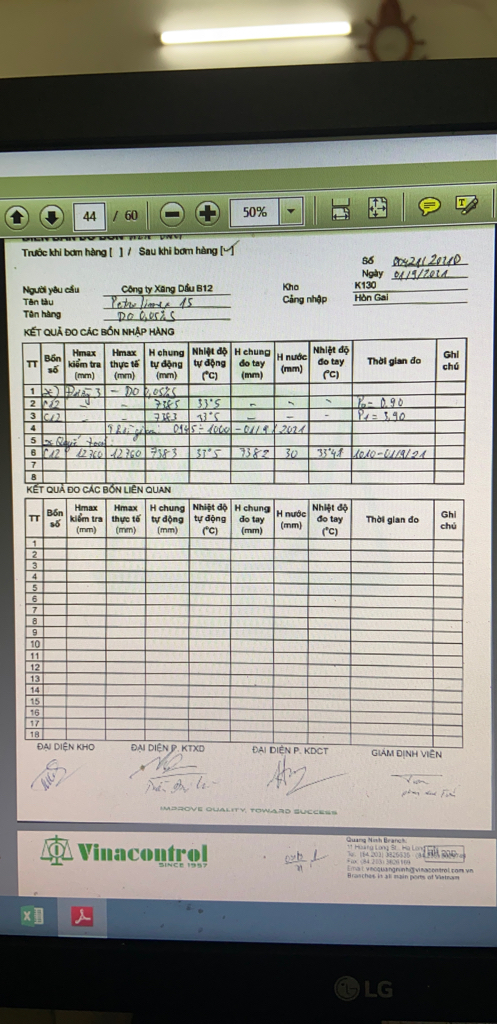 44 / 60 50%
Trước khi bơm hàng [ ] / Sau khi bơm hàng [✓]
Số 00421/2021D
Ngày 01/9/2021
Người yêu cầu Công ty Xăng Dầu B12 Kho K130
Tên tàu Petrolimex 15 Cảng nhập Hòn Gai
Tên hàng DO 0,05%S
KẾT QUẢ ĐO CÁC BỒN NHẬP HÀNG
TT Bồn số Hmax kiểm tra (mm) Hmax thực tế (mm) H chung tự động (mm) Nhiệt độ tự động (°C) H chung đo tay (mm) H nước (mm) Nhiệt độ đo tay (°C) Thời gian đo Ghi chú
1 3 - DO 0,05%S
2 C12 - - 7385 33°5 - - - P0= 0.90
3 C12 - - 7383 33°5 - - - P1= 3,90
4 Thời gian: 0945 ÷ 1000 - 01/9/2021
5
6 C12 12760 12760 7383 33°5 7382 30 33°48 1010-01/9/21
7
8
KẾT QUẢ ĐO CÁC BỒN LIÊN QUAN
TT Bồn số Hmax kiểm tra (mm) Hmax thực tế (mm) H chung tự động (mm) Nhiệt độ tự động (°C) H chung đo tay (mm) H nước (mm) Nhiệt độ đo tay (°C) Thời gian đo Ghi chú
1
2
3
4
5
6
7
8
9
10
11
12
13
14
15
16
17
18
ĐẠI DIỆN KHO ĐẠI DIỆN P. KTXD ĐẠI DIỆN P. KDCT GIÁM ĐỊNH VIÊN
IMPROVE QUALITY, TOWARD SUCCESS
Vinacontrol
SINCE 1957
Quang Ninh Branch:
11 Hoang Long St., Ha Long
Email: vncquangninh@vinacontrol.com.vn
Branches in all main ports of Vietnam
LG